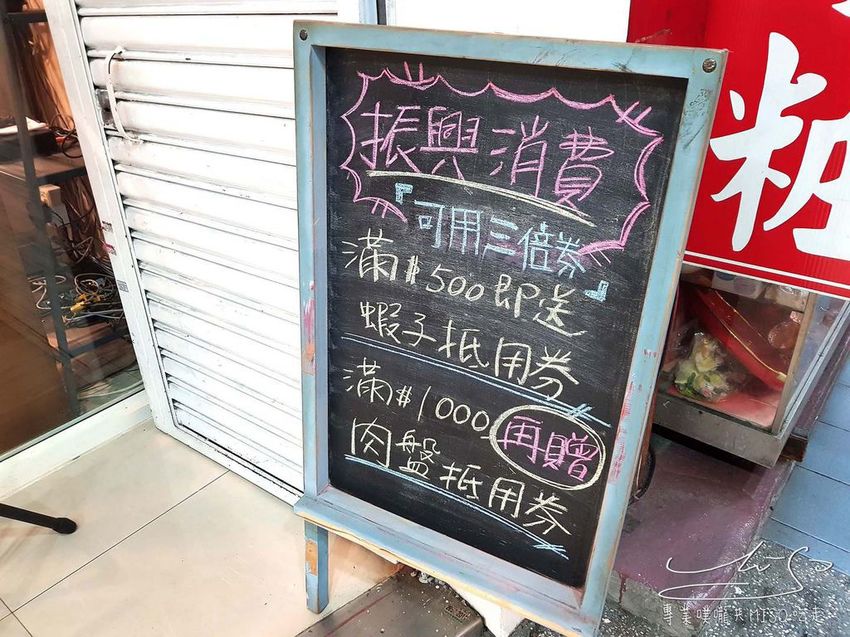 振興消費
『可用三倍券』
滿$500即送
蝦子抵用券
滿$1000再贈
肉盤抵用券
粧
MiSo